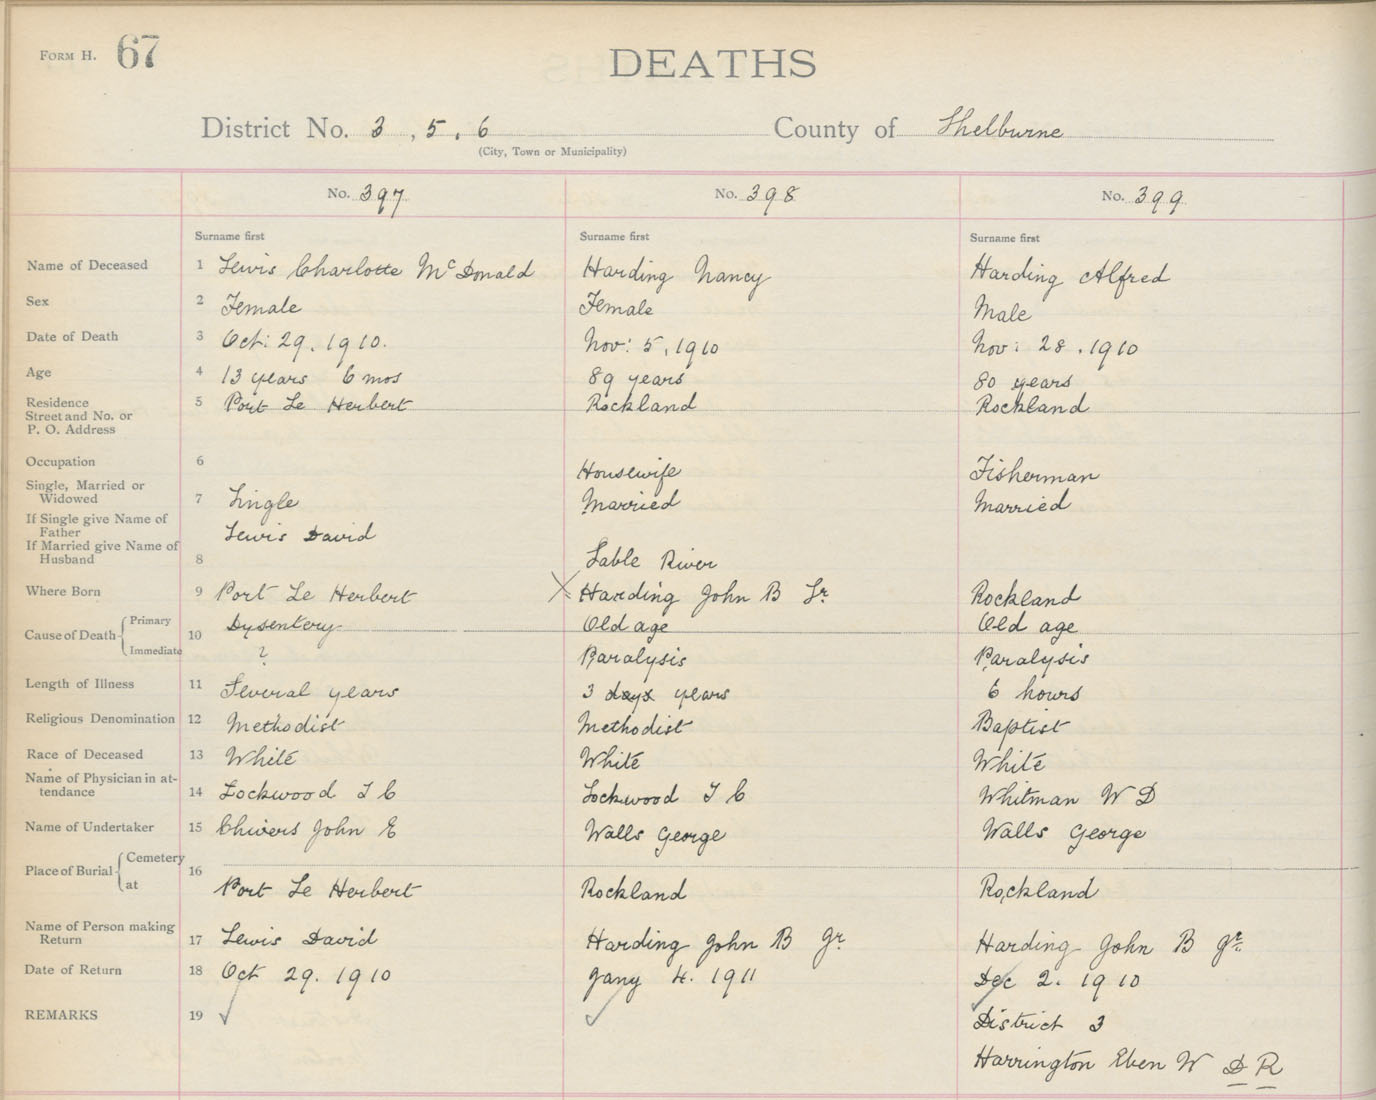 FORM H. 67
DEATHS
District No. 3, 5, 6 County of Shelburne
(City, Town or Municipality)
No. 397 No. 398 No. 399
Surname first Surname first Surname first
Name of Deceased 1 Lewis Charlotte McDonald Harding Nancy Harding Alfred
Sex 2 Female Female Male
Date of Death 3 Oct: 29. 1910. Nov: 5, 1910 Nov: 28, 1910
Age 4 13 years 6 mos 89 years 80 years
Residence 5 Port Le Herbert Rockland Rockland
Street and No. or
P. O. Address
Occupation 6 Housewife Fisherman
Single, Married or
Widowed 7 Single Married Married
If Single give Name of
Father Lewis David
If Married give Name of
Husband 8 Sable River
Where Born 9 Port Le Herbert X Harding John B Sr Rockland
Cause of Death Primary 10 Dysentery Old age Old age
Immediate ? Paralysis Paralysis
Length of Illness 11 Several years 3 days years 6 hours
Religious Denomination 12 Methodist Methodist Baptist
Race of Deceased 13 White White White
Name of Physician in at-
tendance 14 Lockwood T C Lockwood T C Whitman W D
Name of Undertaker 15 Chivers John E Walls George Walls George
Place of Burial Cemetery 16
at Port Le Herbert Rockland Rockland
Name of Person making
Return 17 Lewis David Harding John B Jr Harding John B Jr.
Date of Return 18 Oct 29. 1910 Jany 4. 1911 Dec 2. 1910
REMARKS 19 ✓ ✓ District 3
Harrington Eben W D R